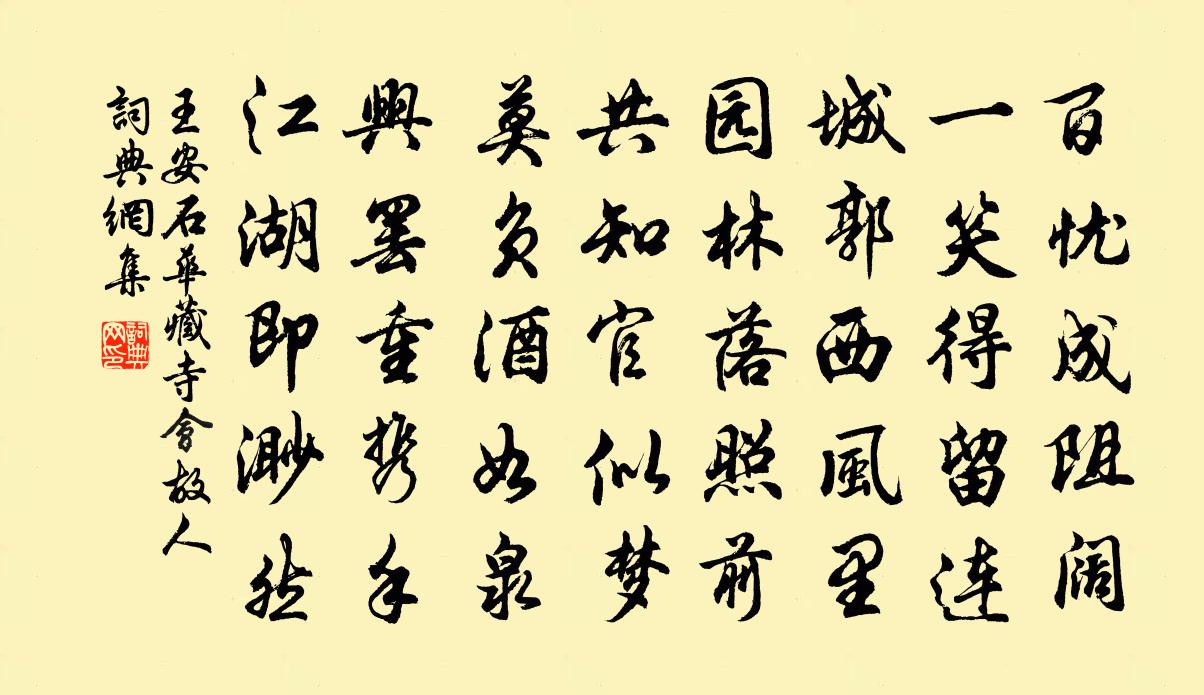 百忧成阻阔
一笑得留连
城郭西風里
园林落照前
共知官似梦
莫负酒如泉
興罢重携手
江湖即渺然
王安石華藏寺會故人
詞典網集
詞典
网印